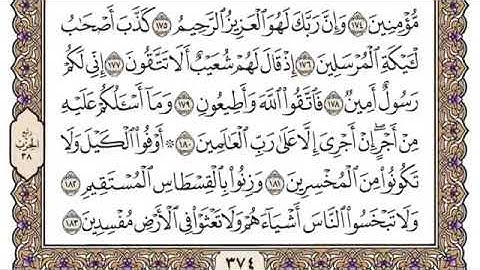 مُّؤْمِنِينَ ١٧٤ وَإِنَّ رَبَّكَ لَهُوَ ٱلْعَزِيزُ ٱلرَّحِيمُ ١٧٥ كَذَّبَ أَصْحَٰبُ
لْـَٔيْكَةِ ٱلْمُرْسَلِينَ ١٧٦ إِذْ قَالَ لَهُمْ شُعَيْبٌ أَلَا تَتَّقُونَ ١٧٧ إِنِّى لَكُمْ
رَسُولٌ أَمِينٌ ١٧٨ فَٱتَّقُوا۟ ٱللَّهَ وَأَطِيعُونِ ١٧٩ وَمَآ أَسْـَٔلُكُمْ عَلَيْهِ
مِنْ أَجْرٍ ۖ إِنْ أَجْرِىَ إِلَّا عَلَىٰ رَبِّ ٱلْعَٰلَمِينَ ١٨٠ ۞ أَوْفُوا۟ ٱلْكَيْلَ وَلَا
تَكُونُوا۟ مِنَ ٱلْمُخْسِرِينَ ١٨١ وَزِنُوا۟ بِٱلْقِسْطَاسِ ٱلْمُسْتَقِيمِ ١٨٢
وَلَا تَبْخَسُوا۟ ٱلنَّاسَ أَشْيَآءَهُمْ وَلَا تَعْثَوْا۟ فِى ٱلْأَرْضِ مُفْسِدِينَ ١٨٣
ربع
الحزب
٣٨
٣٧٤